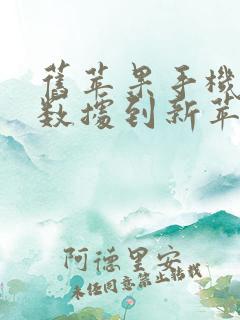 舊苹果手機
数據到新苹
阿德里安
未经同意禁止转载